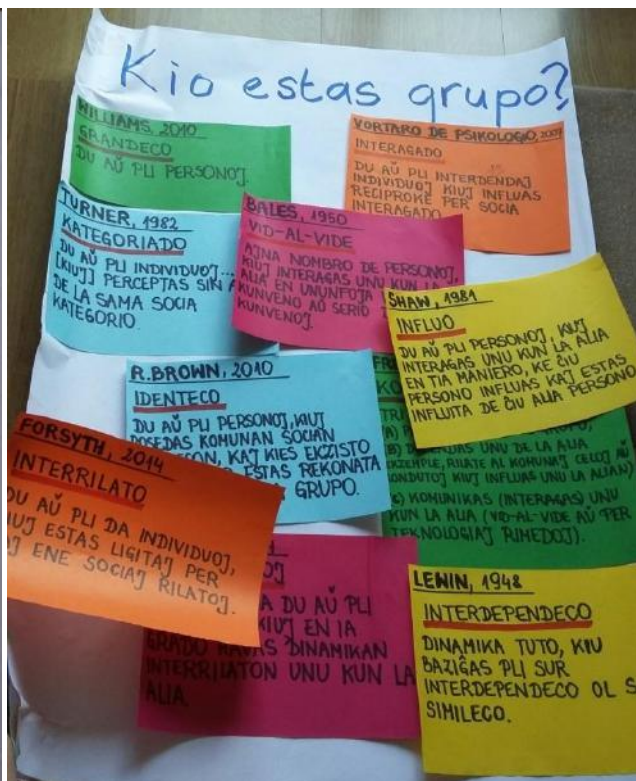 Kio estas grupo?
WILLIAMS, 2010
GRANDECO
DU AŬ PLI PERSONOJ.
VORTARO DE PSIKOLOGIO,
INTERAGADO
DU AŬ PLI INTERDENDAJ
INDIVIDUOJ KIUJ INFLUAS
RECIPROKE PER SOCIA
INTERAGADO
TURNER, 1982
KATEGORIADO
DU AŬ PLI INDIVIDUOJ...
[KIUJ] PERCEPTAS SIN
DE LA SAMA SOCIA
KATEGORIO.
BALES, 1950
VID-AL-VIDE
AJNA NOMBRO DE PERSONOJ,
KIUJ INTERAGAS UNU KUN LA
ALIA EN UNUNFOJA
KUNVENO AŬ SERIO
KUNVENOJ.
SHAW, 1981
INFLUO
DU AŬ PLI PERSONOJ, KIUJ
INTERAGAS UNU KUN LA ALIA
EN TIA MANIERO, KE ĈIU
PERSONO INFLUAS KAJ ESTAS
INFLUITA DE ĈIU ALIA PERSONO
R. BROWN, 2010
IDENTECO
DU AŬ PLI PERSONOJ, KIUJ
POSEDAS KOMUNAN SOCIAN
KAJ KIES EKZISTO
ESTAS REKONATA
GRUPO.
UNU DE LA ALIA
RILATE AL KOMUNAJ CELOJ AŬ
KIUJ INFLUAS UNU LA ALIAN)
KOMUNIKAS (INTERAGAS) UNU
KUN LA ALIA (VID-AL-VIDE AŬ PER
TEKNOLOGIAJ RIMEDOJ).
FORSYTH, 2014
INTERRILATO
DU AŬ PLI DA INDIVIDUOJ,
KIUJ ESTAS LIGITAJ PER
ENE SOCIAJ RILATOJ.
DU AŬ PLI
KIUJ EN IA
GRADO HAVAS DINAMIKAN
INTERRILATON UNU KUN LA
ALIA
LEWIN, 1948
INTERDEPENDECO
DINAMIKA TUTO, KIU
BAZIĜAS PLI SUR
INTERDEPENDECO OL S
SIMILECO.